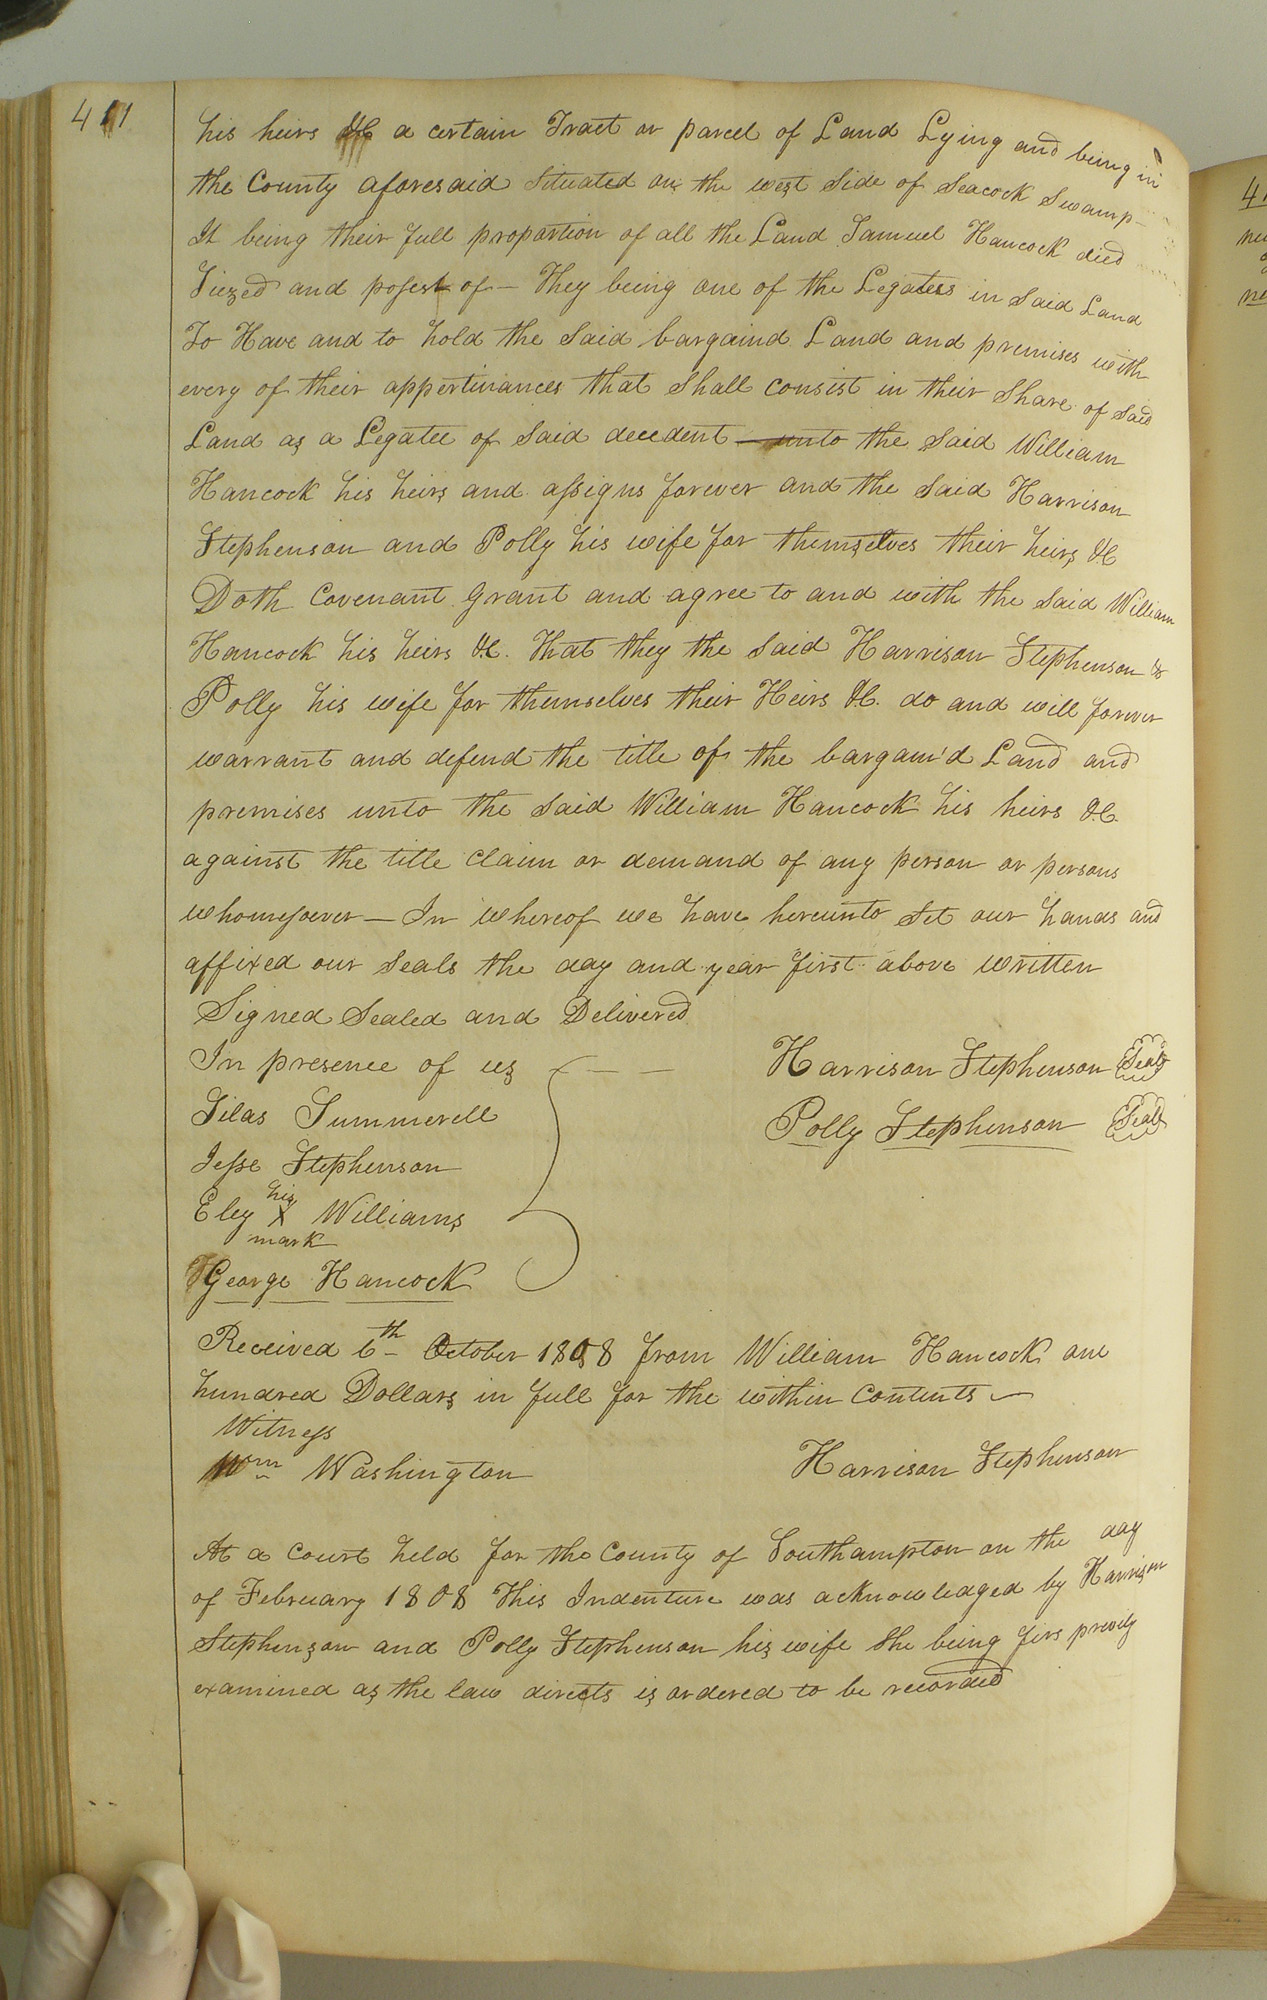 411
his heirs &C a certain Tract or parcel of Land Lying and being in
the County aforesaid Situated on the west Side of Seacock Swamp
It being their full proportion of all the Land Samuel Hancock died
Siezed and posest of — They being one of the Legatees in Said Land
To Have and to hold the Said bargaind Land and premises with
every of their appertinances that Shall Consist in their Share of Said
Land as a Legatee of Said decedent unto the Said William
Hancock his heirs and assigns forever and the Said Harrison
Stephenson and Polly his wife for themselves their heirs &C
Doth Covenant Grant and agree to and with the Said William
Hancock his heirs &C. That they the Said Harrison Stephenson &
Polly his wife for themselves their Heirs &C. do and will forever
warrant and defend the title of the bargain'd Land and
premises unto the Said William Hancock his heirs &C.
against the title Claim or demand of any person or persons
whomesoever — In whereof we have hereunto Set our hands and
affixed our Seals the day and year first above written
Signed Sealed and Delivered
In presence of us — — — Harrison Stephenson Seal
Silas Summerell Polly Stephenson Seal
Jesse Stephenson
his
Eley X Williams
mark
George Hancock
Received 6th October 1808 from William Hancock one
hundred Dollars in full for the within Contents
Witness
Wm Washington Harrison Stephenson
At a Court held for the County of Southampton on the day
of February 1808 This Indenture was acknowledged by Harrison
Stephenson and Polly Stephenson his wife She being firs prively
examined as the law directs is ordered to be recorded
4